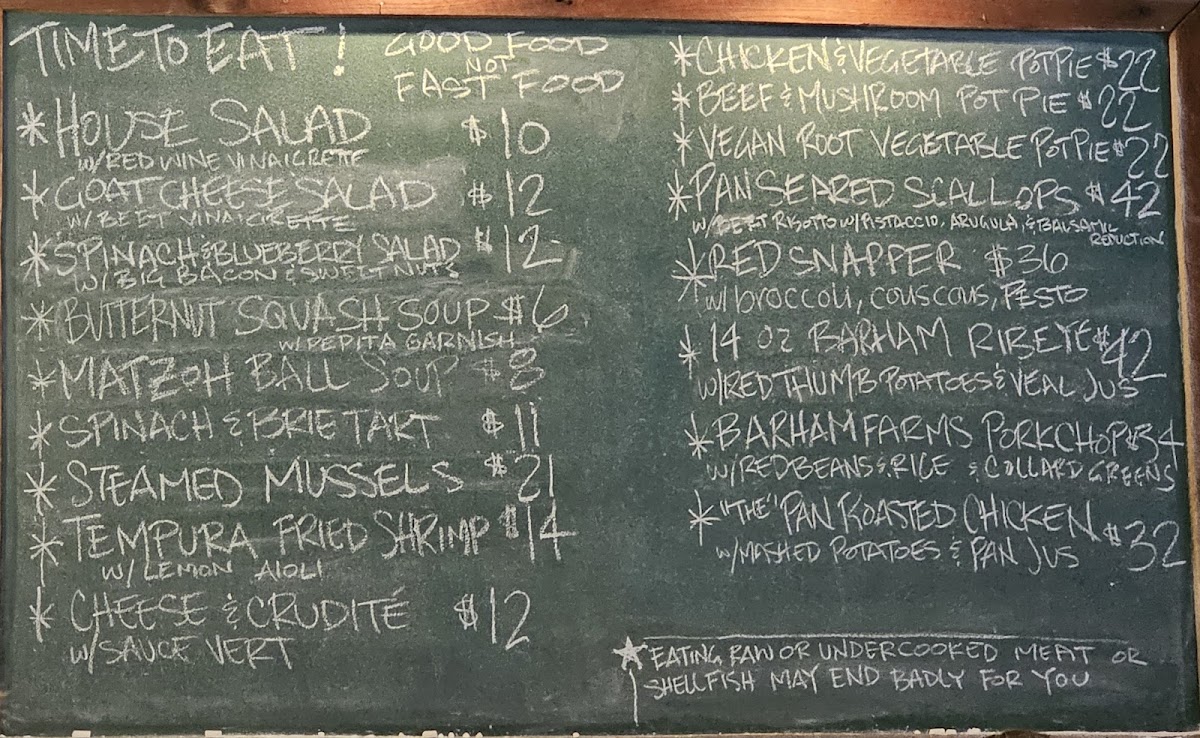 TIME TO EAT!
GOOD FOOD
NOT
FAST FOOD
*HOUSE SALAD $10
W/RED WINE VINAIGRETTE
*GOAT CHEESE SALAD $12
W/ BEET VINAIGRETTE
*SPINACH & BLUEBERRY SALAD $12
W/ BIG BACON & SWEET NUTS
*BUTTERNUT SQUASH SOUP $6
W/PEPITA GARNISH
*MATZOH BALL SOUP $8
*SPINACH & BRIE TART $11
*STEAMED MUSSELS $21
*TEMPURA FRIED SHRIMP $14
W/ LEMON AIOLI
*CHEESE & CRUDITÉ $12
W/SAUCE VERT
*CHICKEN & VEGETABLE POT PIE $22
*BEEF & MUSHROOM POT PIE $22
*VEGAN ROOT VEGETABLE POT PIE $22
*PAN SEARED SCALLOPS $42
W/ BEET RISOTTO W/ PISTACCIO, ARUGULA, & BALSAMIC
REDUCTION
*RED SNAPPER $36
W/ broccoli, couscous, PESTO
*14 OZ BARHAM RIBEYE $42
W/RED THUMB POTATOES & VEAL JUS
*BARHAM FARMS PORK CHOP $34
W/RED BEANS & RICE & COLLARD GREENS
*"THE" PAN ROASTED CHICKEN $32
W/MASHED POTATOES & PAN JUS
★EATING RAW OR UNDERCOOKED MEAT OR
SHELLFISH MAY END BADLY FOR YOU